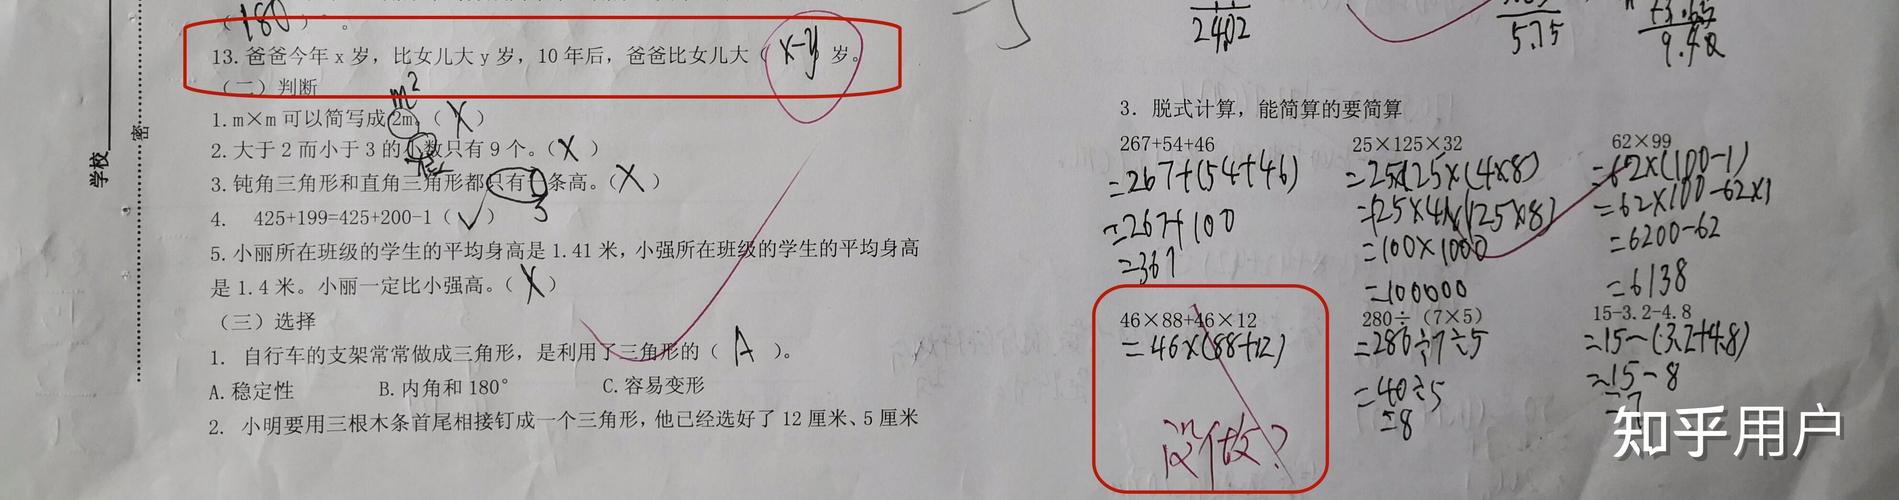 （180）°。
13.爸爸今年 x 岁，比女儿大 y 岁，10 年后，爸爸比女儿大（ x-y 岁。
（二）判断
m²
1.m×m 可以简写成 2m。（ X ）
2.大于 2 而小于 3 的小数只有 9 个。（ X ）
3.钝角三角形和直角三角形都只有一条高。（ X ）
3
4. 425+199=425+200-1（ √ ）
5.小丽所在班级的学生的平均身高是 1.41 米，小强所在班级的学生的平均身高
是 1.4 米。小丽一定比小强高。（ X ）
（三）选择
1. 自行车的支架常常做成三角形，是利用了三角形的（ A ）。
A.稳定性 B.内角和 180° C.容易变形
2. 小明要用三根木条首尾相接钉成一个三角形，他已经选好了 12 厘米、5 厘米
学校
密
5.75
3. 脱式计算，能简算的要简算
267+54+46
=267+(54+46)
=267+100
=367
25×125×32
=25×125×(4×8)
=(25×4)×(125×8)
=100×1000
=100000
62×99
=62×(100-1)
=62×100-62×1
=6200-62
=6138
46×88+46×12
=46×(88+12)
没做?
280÷（7×5）
=280÷7÷5
=40÷5
=8
15-3.2-4.8
=15-(3.2+4.8)
=15-8
=7
知乎用户